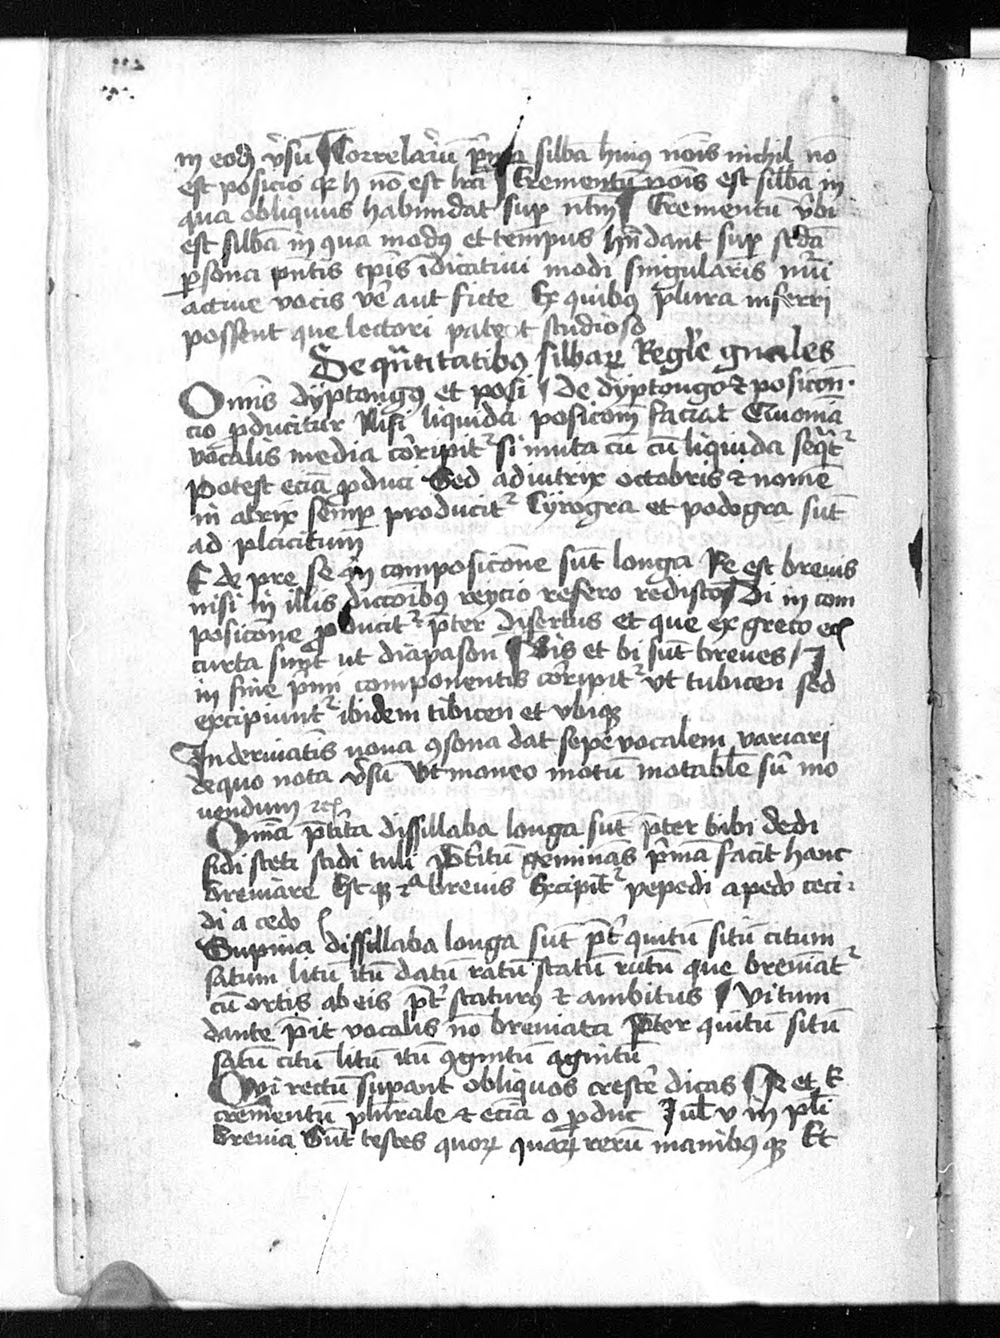 in eodē v̄su Correlariū p̄ma silba huiꝰ nōis nichil nō
est posicio qꝛ h nō est lr̄a Crementū nōis est silba in
qua obliquus habundat sup̱ nt̄m Crementū v̄bi
est silba in qua modꝰ et tempus hn̄dant sup̱ scd̄ā
ꝑsona pn̄tis tp̄is īdicatiui modi singularis nūi
actiue vocis vē aut ficte Ex quibꝰ plura inferri
possent que lectori patēt studioso
De qūtitatibꝰ silbaꝝ Regl̄e gn̄ales
Omīs dyptongꝰ et posi de dyptongo ⁊ posicōn
cio ꝓducitur Nisi liquida posicōm faciat Quoniā
vocalis media cōripit᷑ si muta cū cū liquida seqͥt᷑
potest eciā ꝓduci Sed adiutrix octobris ⁊ nomē
in atrix semꝑ producit᷑ Cyrogra et podogra sūt
ad placitum
E de pre se in composicōne sūt longa Re est breuis
nisi in illis diccōibꝰ reycio refero redisco Di in com
posicōne ꝓducit᷑ p̄ter disertus et que ex greco
curta sunt ut diapason Bis et bi sūt breues I
in fine p̄mi componentis cōripit᷑ vt tubicen sed
excipiunt᷑ ibidem tibicen et vbiqꝫ
In deriuatis noua ꝯsona dat sepe vocalem variari
de quo nota v̄su Vt moneo motū motabl̄e sū mo
uendum ⁊cͣ
Omīa p̄tita dissillaba longa sūt p̄ter bibi dedi
fidi steti scidi tuli P̄titū geminās p̄mā facit hanc
breuiare Estqꝫ ⁊ᵃ breuis Excipit᷑ pepedi a pedo ceci
di a cedo
Supina dissillaba longa sūt p̄t quitū sitū citum
satum litū itū datū ratū statū rutū que breuiāt᷑
cū ortis ab eis p̄t staturꝰ ⁊ ambitus Vitum
dante p̄it vocalis nō breuiata P̄ter quitū sitū
satū citū litū itū ꝯgnitū agnitū
Qui rectū supant obliquos crescē dicas A et E
crementū plurale ⁊ eciā o ꝓduc I ul̄ v in pl̄i
breuia Sūt testes quoꝝ quaꝝ rerū manibꝰqꝫ Et